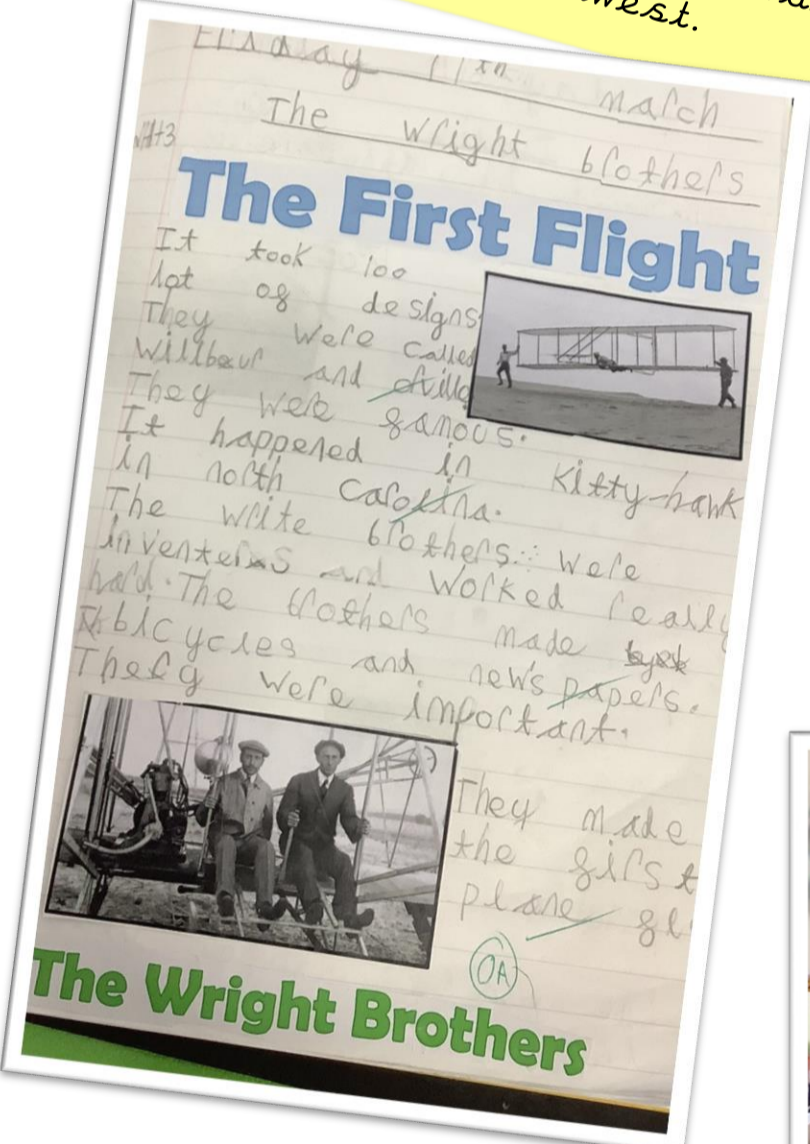 west.
Friday 11th march
The wright brothers
The First Flight
It took 100
lot of designs
They were called
Willbeur and
They were famous.
It happened in Kitty-hawk
in north Carolina.
The write brothers.. were
inventeras and worked really
hard. The brothers made
bicycles and news papers.
They were important.
They made
the first
plane fl
OA
The Wright Brothers